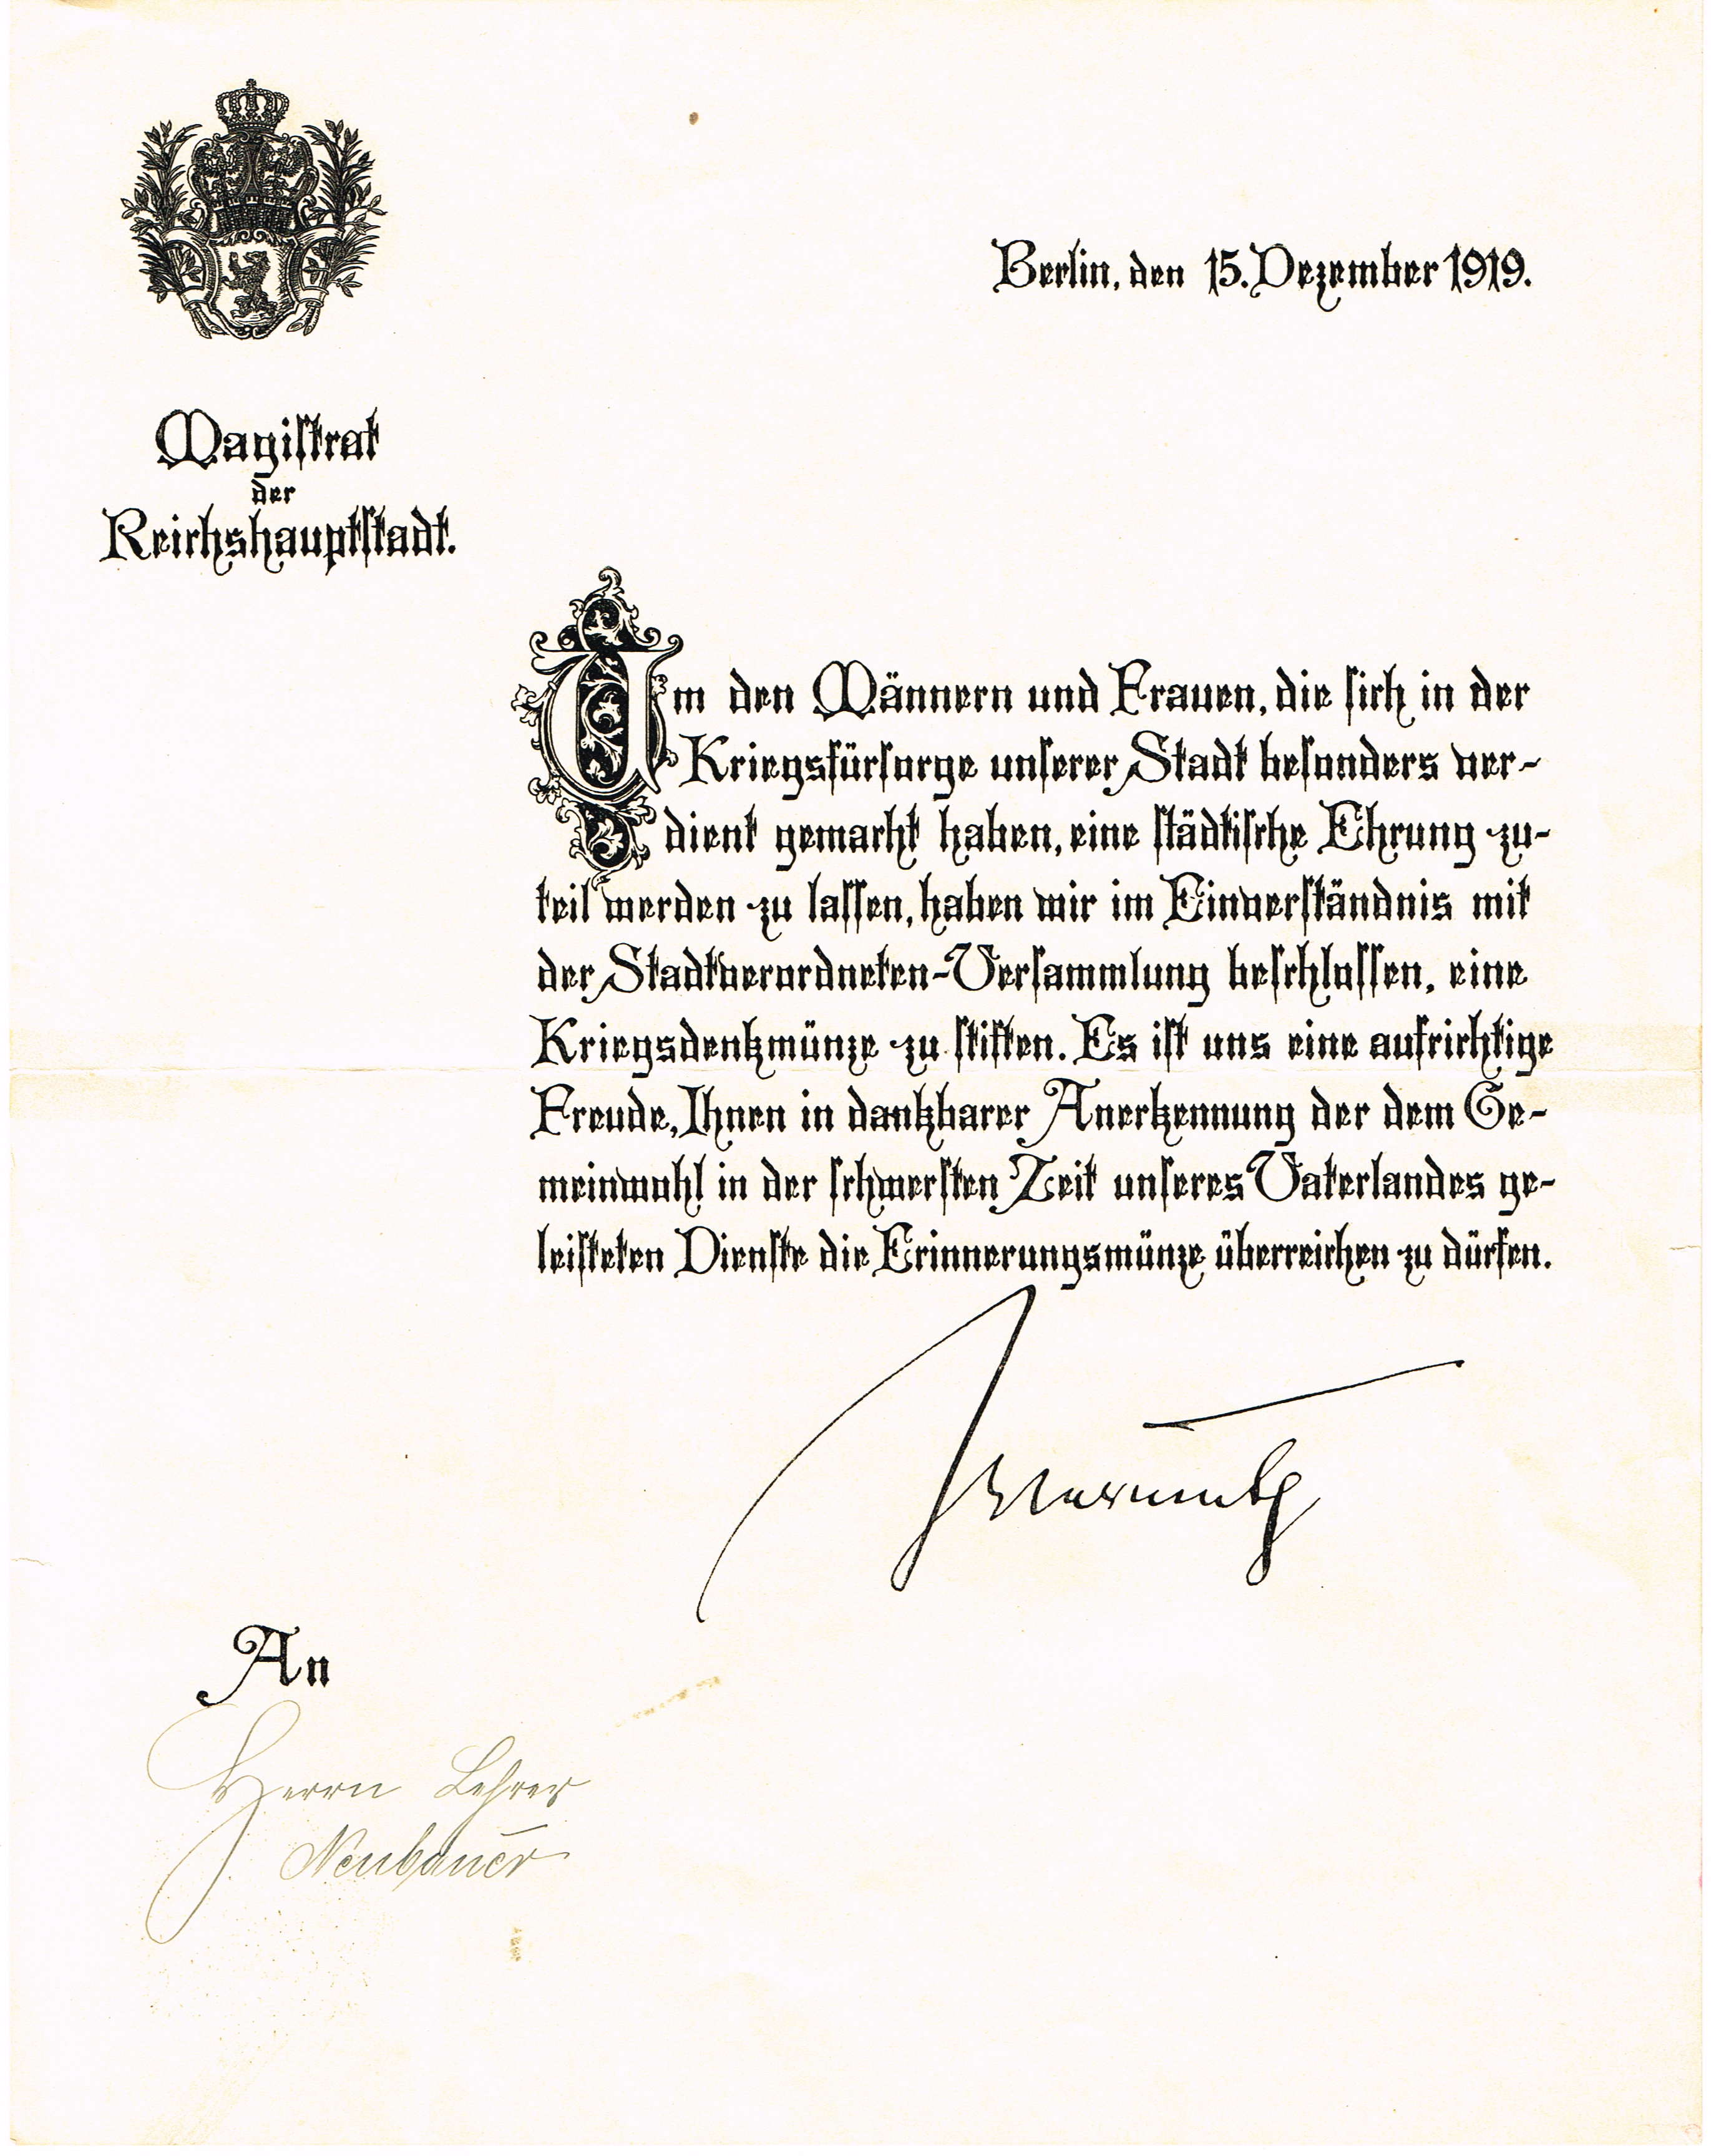 Berlin, den 15. Dezember 1919.
Magistrat
der
Reichshauptstadt.
Um den Männern und Frauen, die sich in der
Kriegsfürsorge unserer Stadt besonders ver-
dient gemacht haben, eine städtische Ehrung zu-
teil werden zu lassen, haben wir im Einverständnis mit
der Stadtverordneten-Versammlung beschlossen, eine
Kriegsdenkmünze zu stiften. Es ist uns eine aufrichtige
Freude, Ihnen in dankbarer Anerkennung der dem Ge-
meinwohl in der schwersten Zeit unseres Vaterlandes ge-
leisteten Dienste die Erinnerungsmünze überreichen zu dürfen.
Wermuth
An
Herrn Lehrer
Neubauer